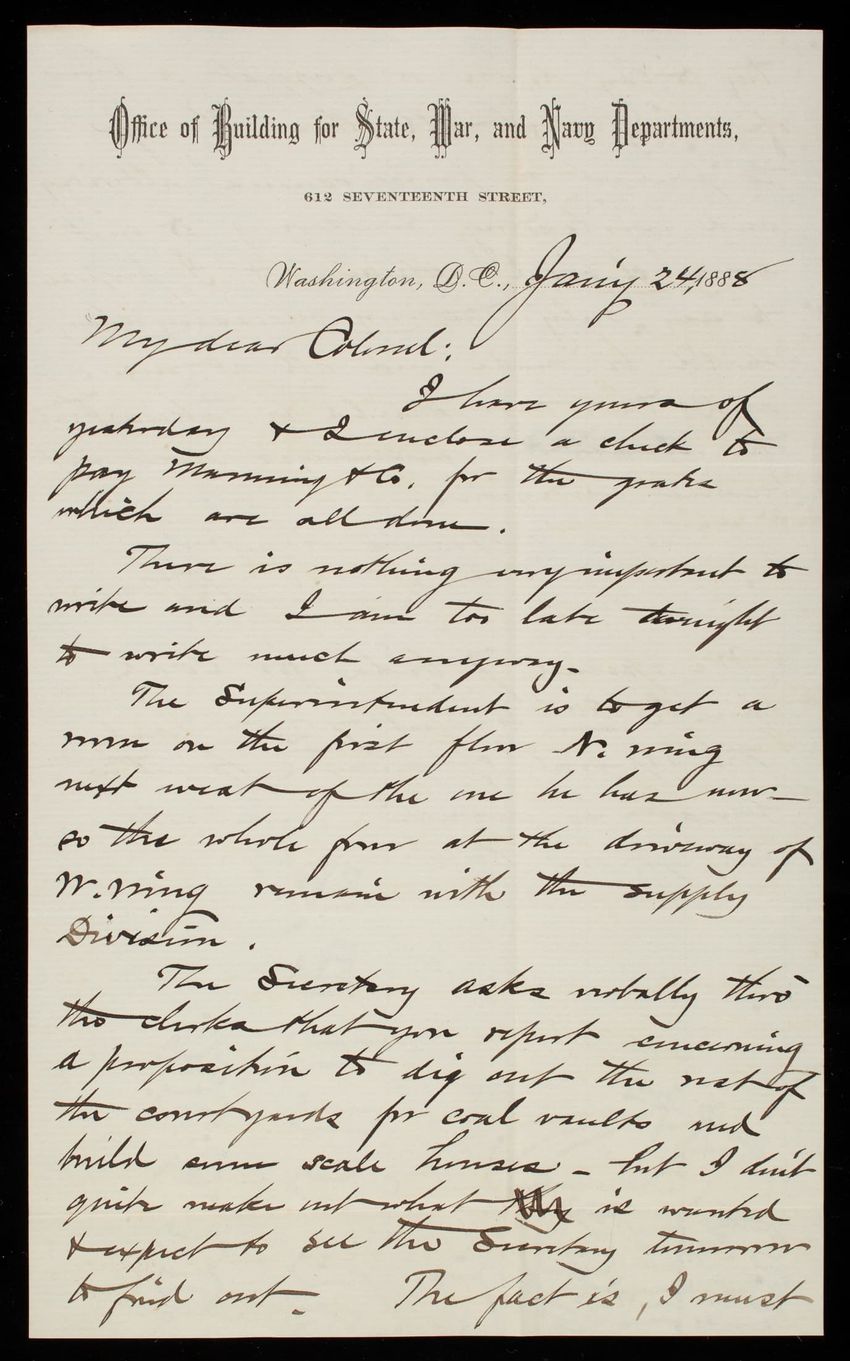 Office of Building for State, War, and Navy Departments,
612 SEVENTEENTH STREET,
Washington, D.C., Jan'y 24, 1888
My dear Colonel:
I have yours of
yesterday & I enclose a check to
pay Manning & Co. for the grates
which are all done.
There is nothing very important to
write and I am too late tonight
to write much anyway.
The Superintendent is to get a
room on the first floor N. wing
next west of the one he has now—
so the whole four at the driveway of
W. wing remain with the Supply
Division.
The Secretary asks verbally thro'
the clerks that you report concerning
a proposition to dig out the rest of
the courtyards for coal vaults and
build some scale houses - but I don't
quite make out what is wanted
& expect to see the Secretary tomorrow
to find out. The fact is, I must